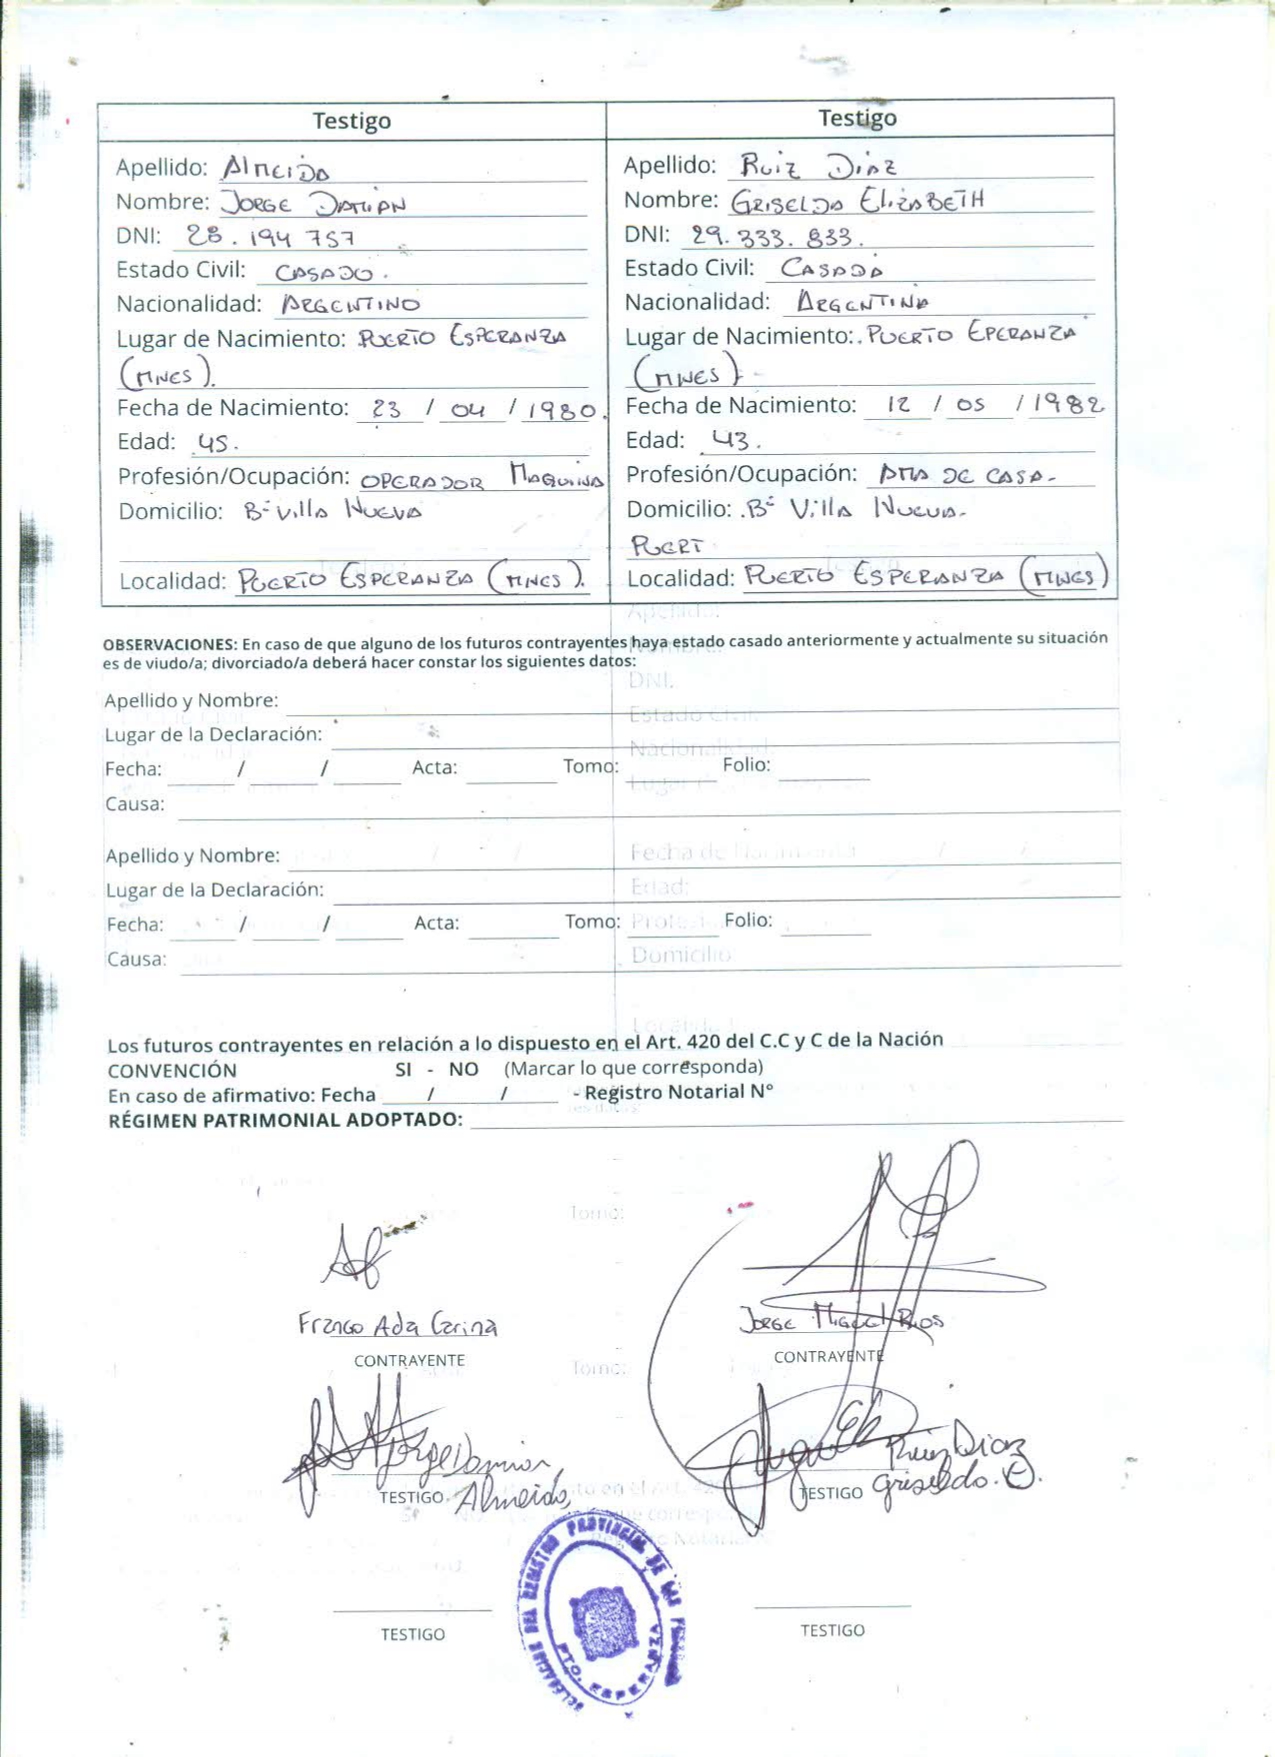 Testigo
Apellido: Almeida
Nombre: Jorge Damian
DNI: 28.194 757
Estado Civil: Casado.
Nacionalidad: Argentino
Lugar de Nacimiento: Puerto Esperanza
(Mnes).
Fecha de Nacimiento: 23 / 04 / 1980.
Edad: 45.
Profesión/Ocupación: Operador Maquina
Domicilio: Bº Villa Nueva
Localidad: Puerto Esperanza (Mnes).
Testigo
Apellido: Ruiz Diaz
Nombre: Griselda Elizabeth
DNI: 29.333.833.
Estado Civil: Casada
Nacionalidad: Argentina
Lugar de Nacimiento: Puerto Eperanza
(Mnes)-
Fecha de Nacimiento: 12 / 05 / 1982
Edad: 43.
Profesión/Ocupación: Ama de Casa-
Domicilio: Bº Villa Nueva-
Puert
Localidad: Puerto Esperanza (Mnes)
OBSERVACIONES: En caso de que alguno de los futuros contrayentes haya estado casado anteriormente y actualmente su situación
es de viudo/a; divorciado/a deberá hacer constar los siguientes datos:
Apellido y Nombre:
Lugar de la Declaración:
Fecha: / / Acta: Tomo: Folio:
Causa:
Apellido y Nombre:
Lugar de la Declaración:
Fecha: / / Acta: Tomo: Folio:
Causa:
Los futuros contrayentes en relación a lo dispuesto en el Art. 420 del C.C y C de la Nación
CONVENCIÓN SI - NO (Marcar lo que corresponda)
En caso de afirmativo: Fecha / / - Registro Notarial N°
RÉGIMEN PATRIMONIAL ADOPTADO:
Franco Ada Carina
CONTRAYENTE
Jorge Miguel Rios
CONTRAYENTE
Jorge Damian
TESTIGO Almeida
Ruiz Diaz
TESTIGO Griselda. E.
TESTIGO
TESTIGO
REGISTRO PROVINCIAL DE LAS
PTO. ESPERANZA